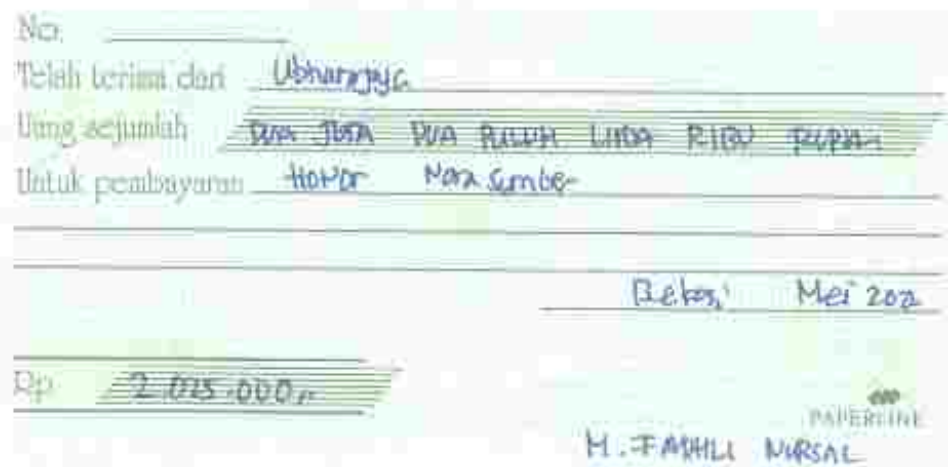 No.
Telah terima dari Ubharajaya
Uang sejumlah DUA JUTA DUA PULUH LIMA RIBU RUPIAH
Untuk pembayaran Honor Nara Sumber
Bekasi Mei 202
Rp. 2.025.000,-
PAPERLINE
M. FADHLI NURSAL